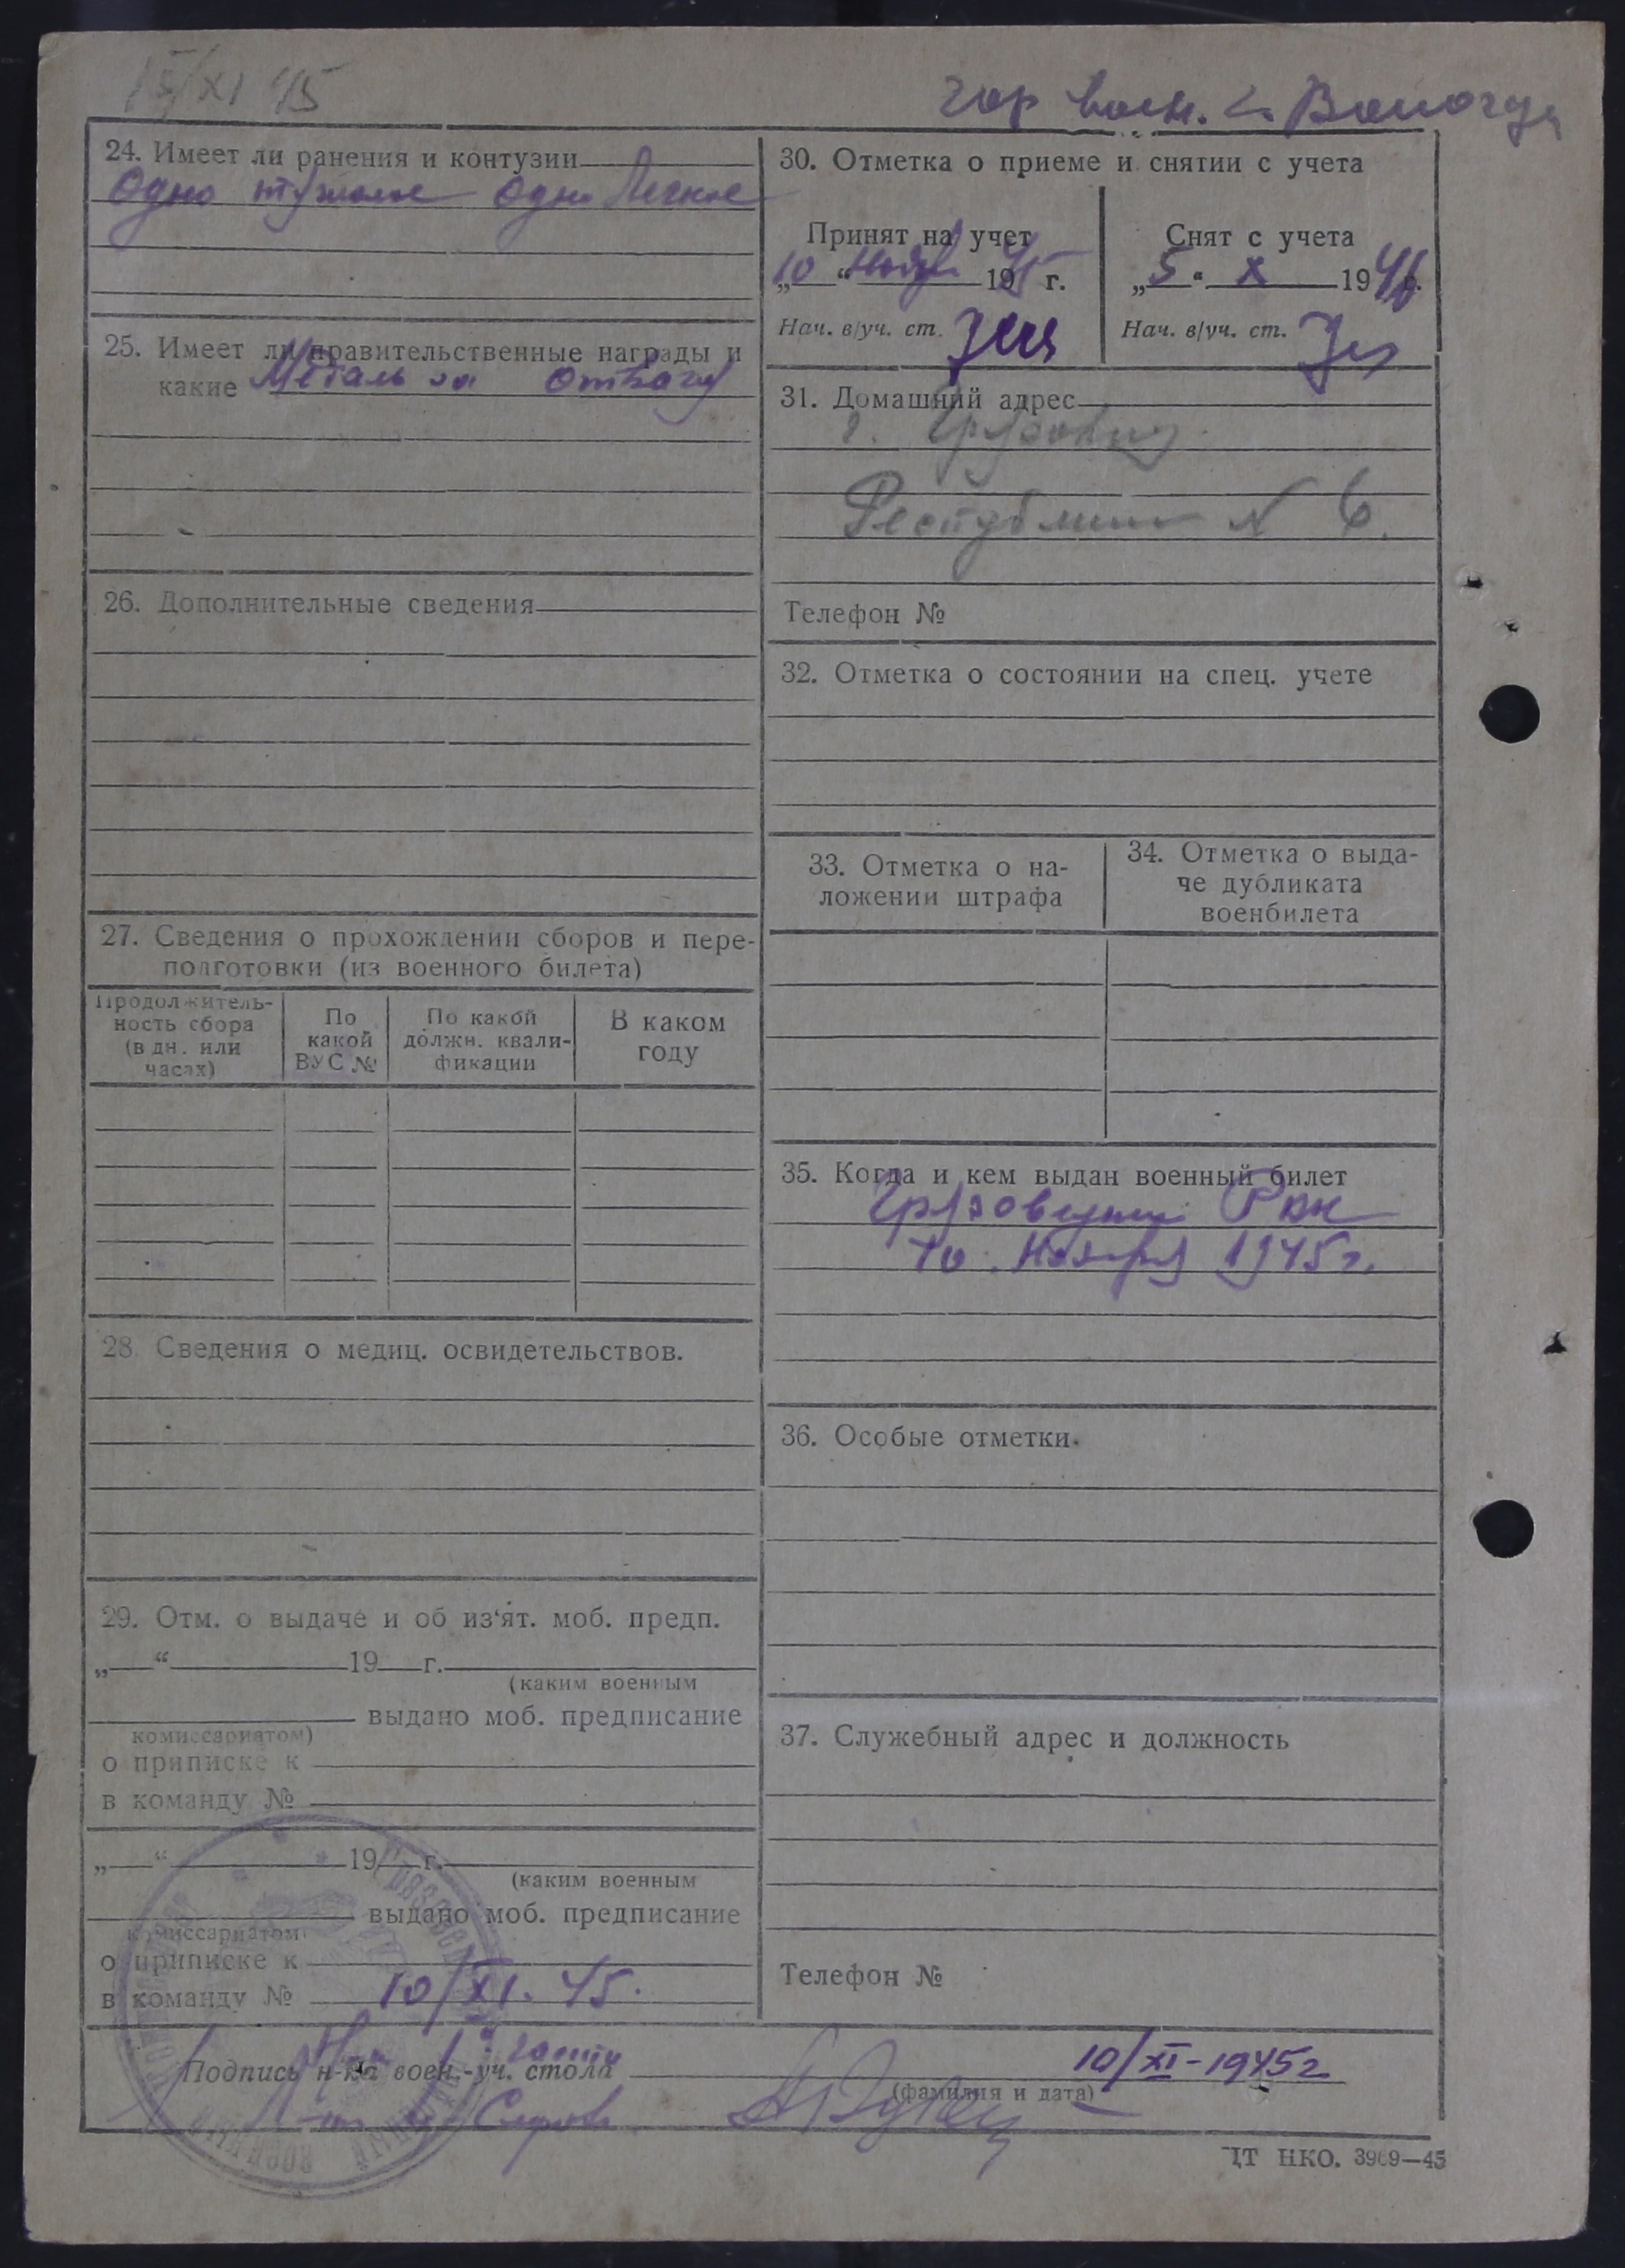 15/XI 45
гор воен. г. Вологда
24. Имеет ли ранения и контузии
Одно тяжолое одно Легкое
25. Имеет ли правительственные награды и
какие Медаль за отвагу
26. Дополнительные сведения
27. Сведения о прохождении сборов и пере-
подготовки (из военного билета)
Продолжитель-
ность сбора
(в дн. или
часах)
По
какой
ВУС №
По какой
должн. квали-
фикации
В каком
году
28. Сведения о медиц. освидетельствов.
29. Отм. о выдаче и об из‘ят. моб. предп.
„ “ 19 г.
(каким военным
выдано моб. предписание
комиссариатом)
о приписке к
в команду №
„ “ 19 г.
(каким военным
выдано моб. предписание
комиссариатом)
о приписке к
в команду № 10/XI. 45.
30. Отметка о приеме и снятии с учета
Принят на учет
„10“ Ноября 1945 г.
Нач. в/уч. ст.
Снят с учета
„5“ X 1946 г.
Нач. в/уч. ст.
31. Домашний адрес
г. Грязовец
Республики № 6.
Телефон №
32. Отметка о состоянии на спец. учете
33. Отметка о на-
ложении штрафа
34. Отметка о выда-
че дубликата
военбилета
35. Когда и кем выдан военный билет
Грязовецким РВК
10. Ноября 1945 г.
36. Особые отметки.
37. Служебный адрес и должность
Телефон №
Подпись н-ка воен.-уч. стола
10/XI-1945г
(фамилия и дата)
ЦТ НКО. 3969—45